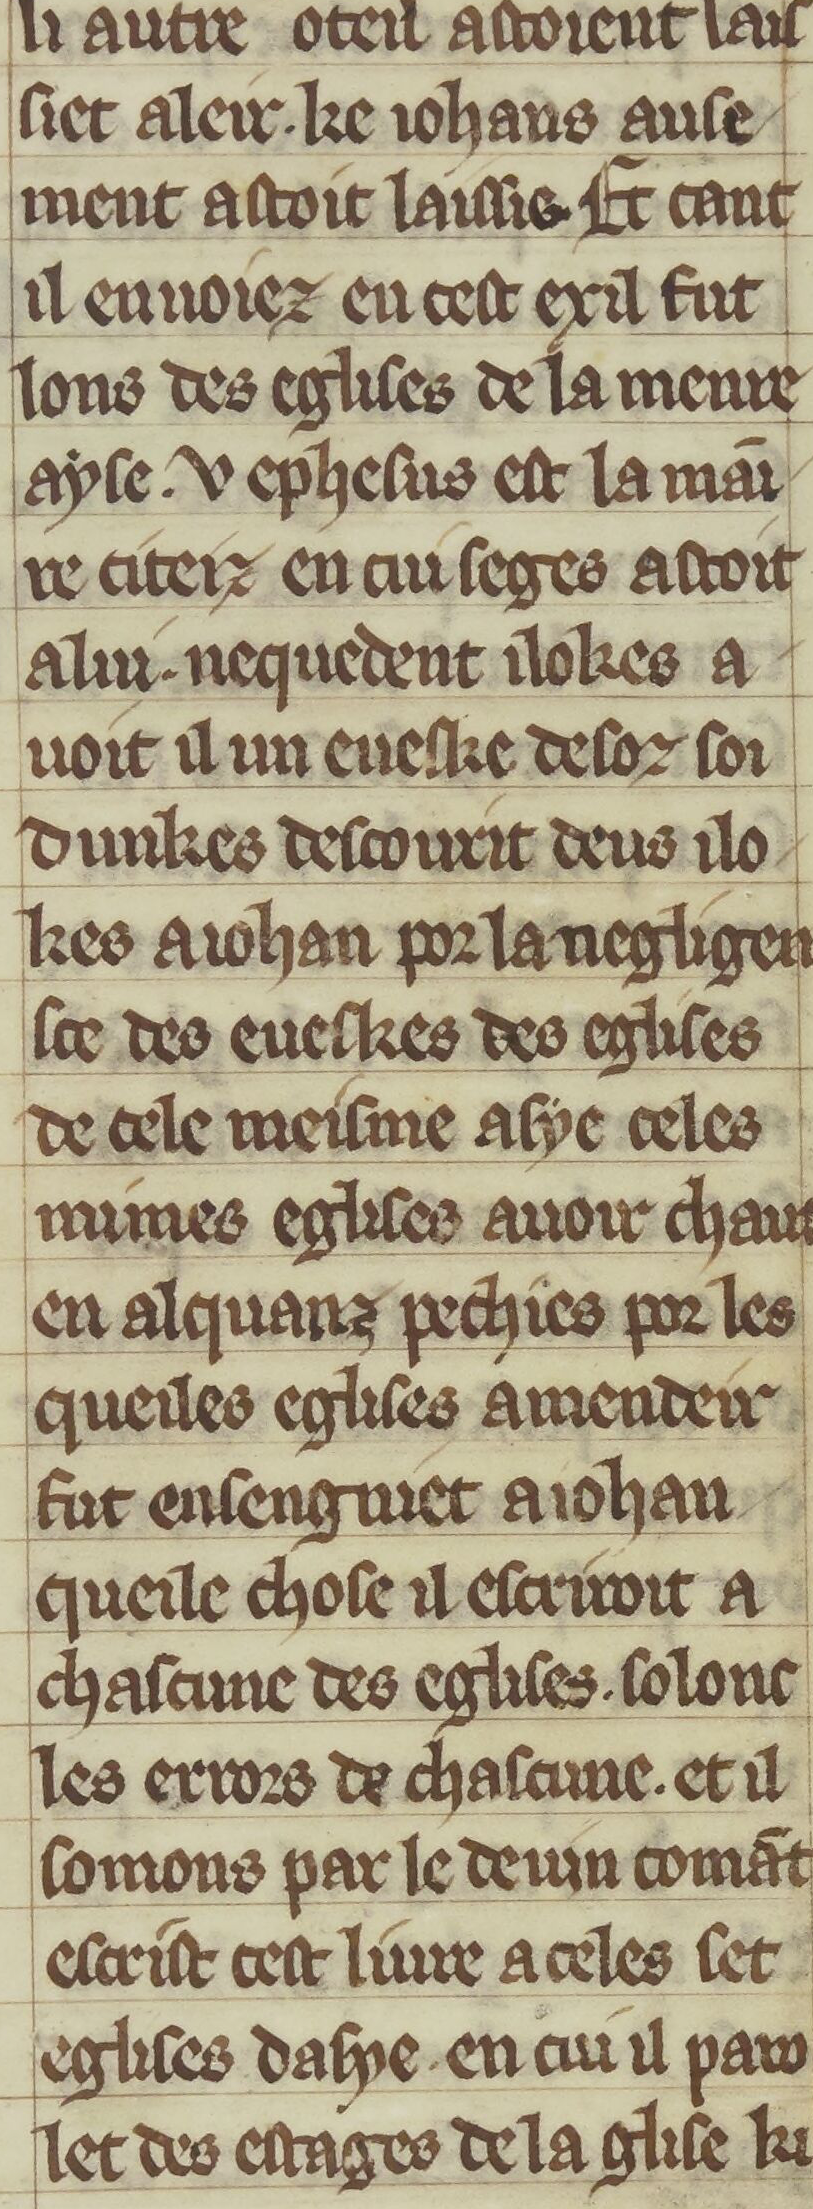 li autre oteil astoient lais
siet aleir. ke iohans ause
ment astoit laissie. Et cant
il enuoiez en cest exil fut
lons des eglises de la menre
ayse. V ephesus est la māi
re citeiz en cui seges astoit
a lui. nequedent ilokes a
uoit il un eueske desoz soi
dunkes descourit deus ilo
kes a iohan por la negligen
sce des eueskes des eglises
de cele meisme asye celes
mimes eglises auoir chaut
en alquanz pechies por les
queiles eglises amendeir
fut ensengniet a iohan
queile chose il escriuoit a
chascune des eglises. solonc
les errors de chascune. et il
somons par le deuin comāt
escrist cest liure a celes set
eglises dasye. en cui il paro
let des estages de la glise ki